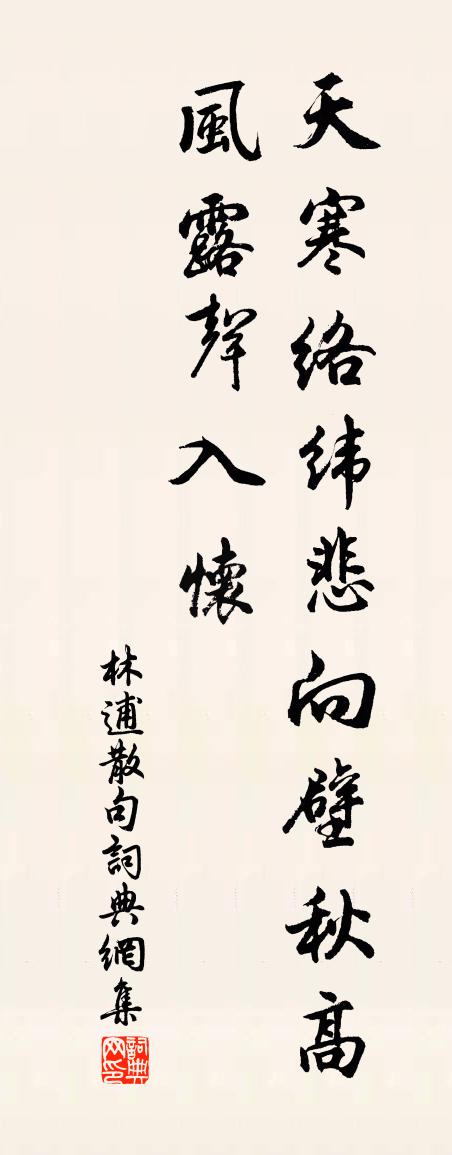 天寒络纬悲向壁秋高
風露聲入懷
林逋散句詞典網集
詞典网印